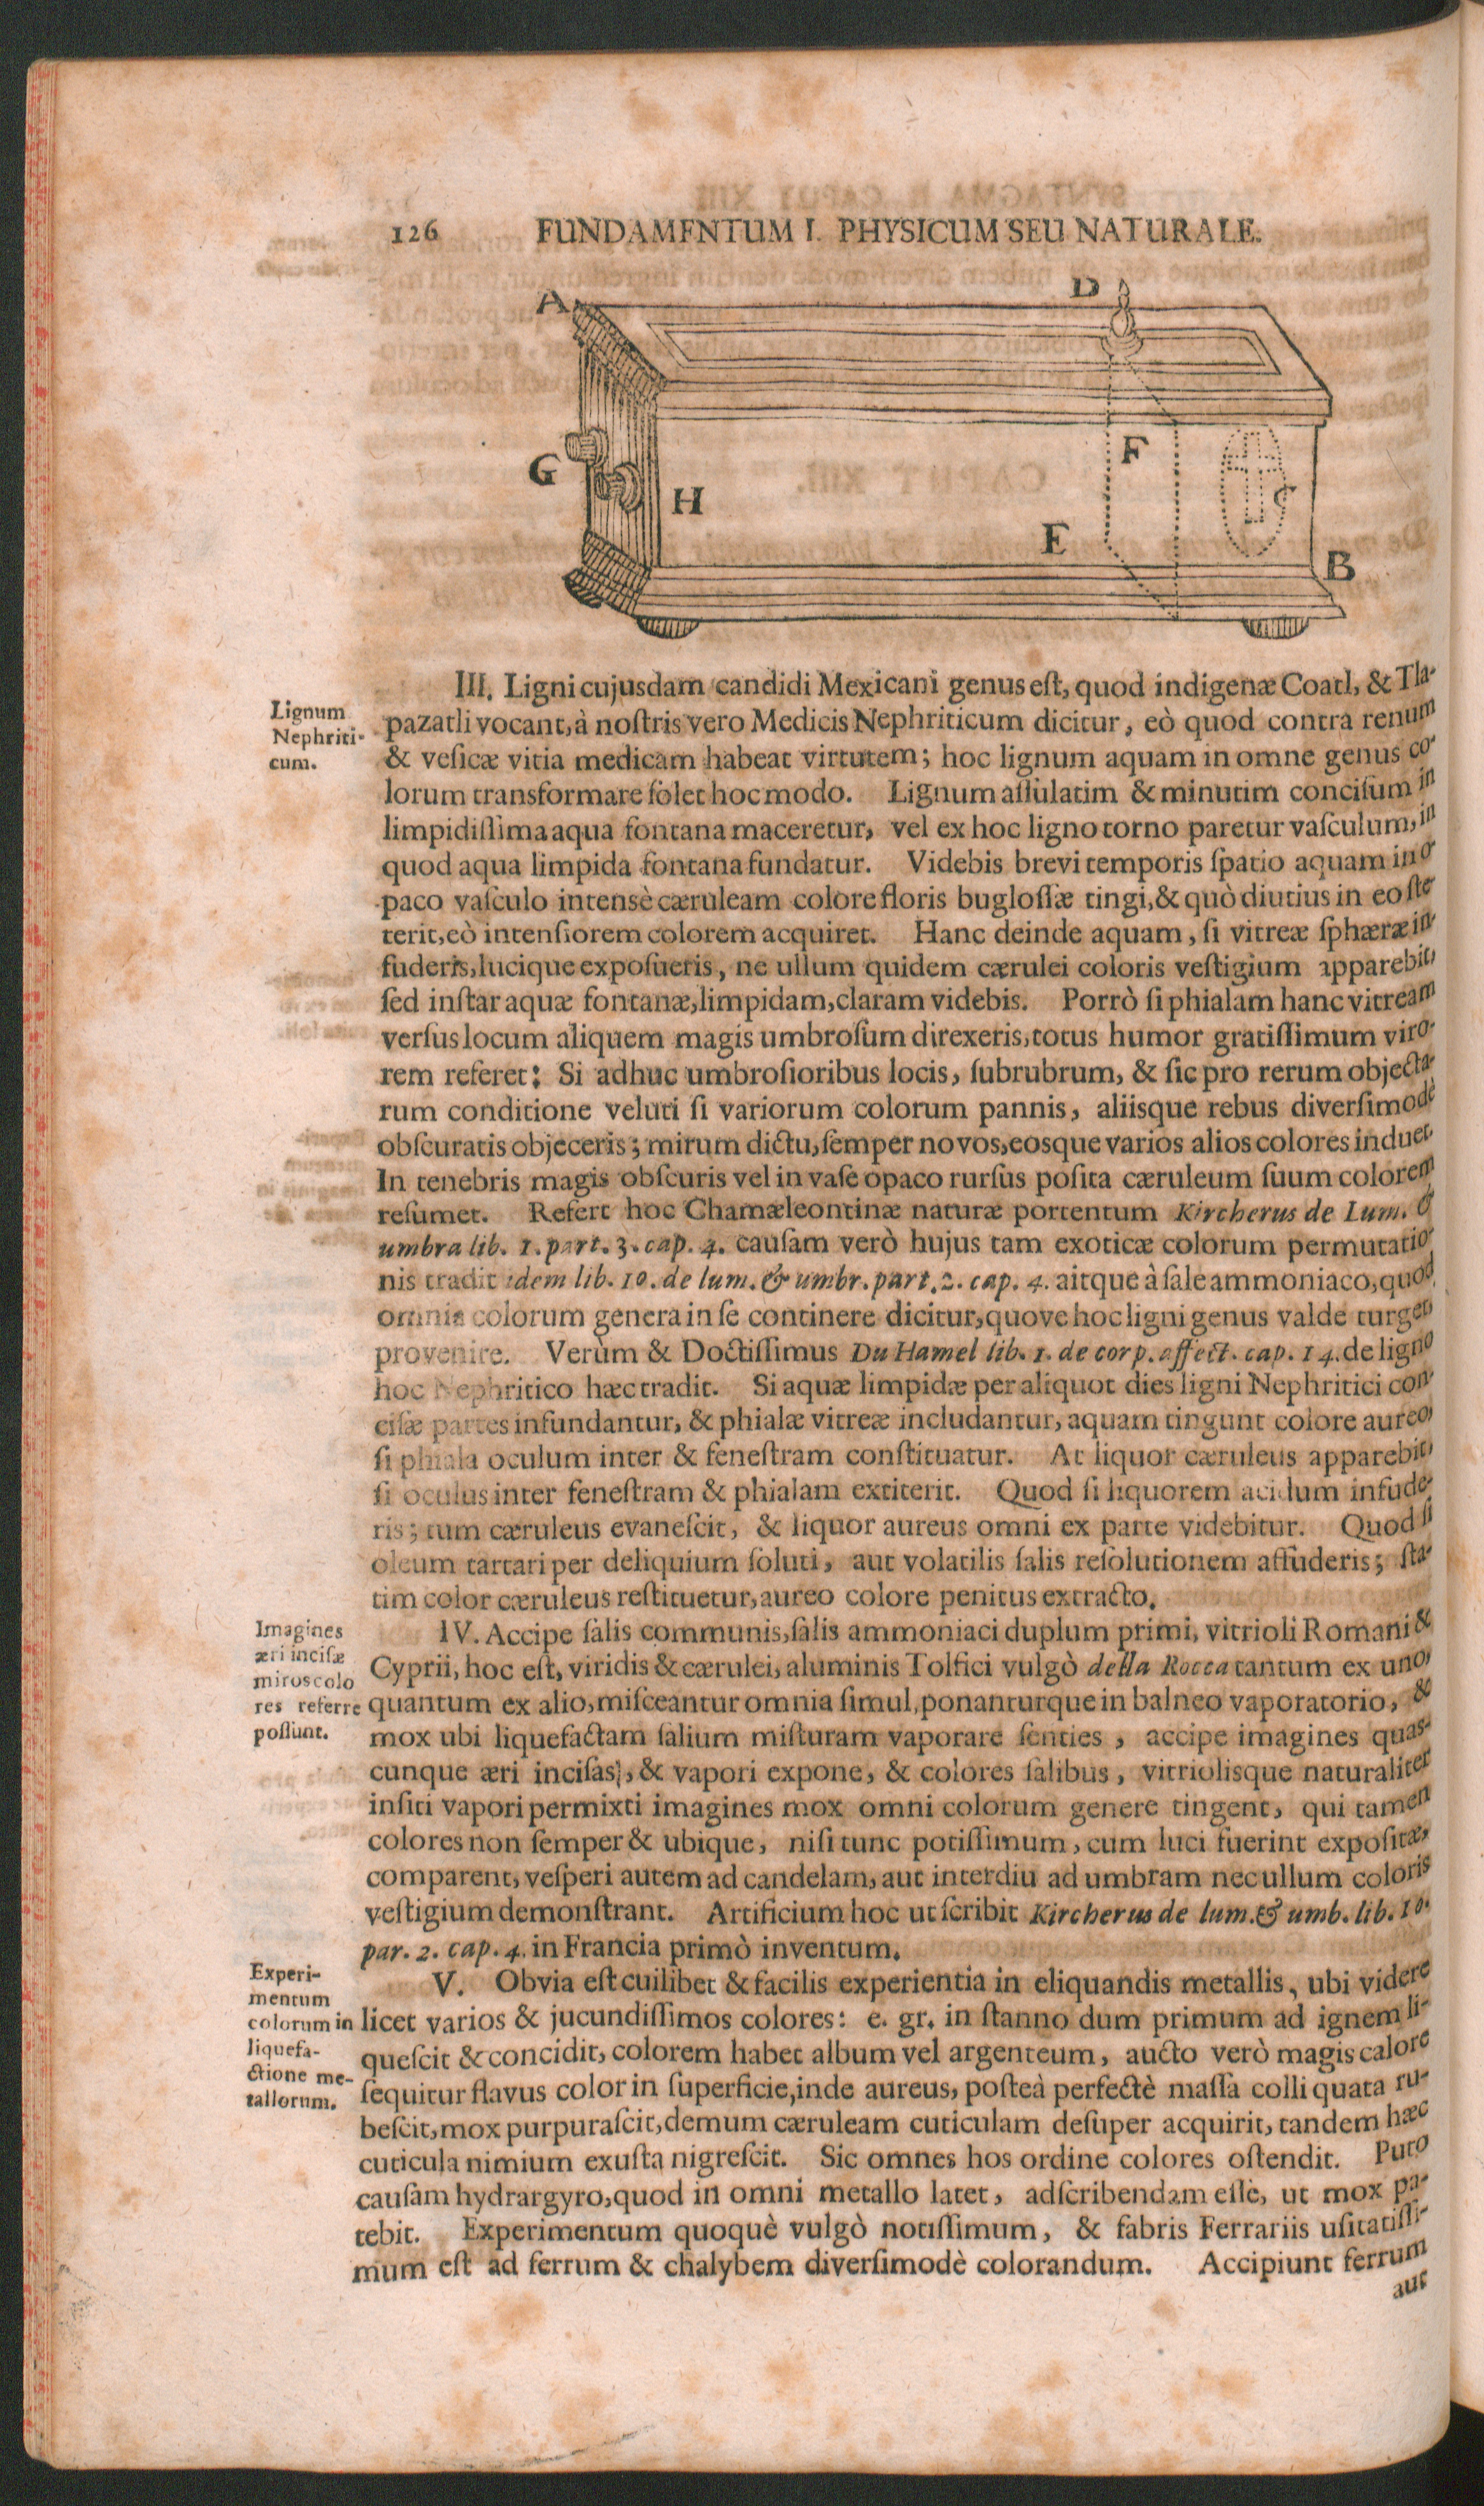 126 FUNDAMENTUM I. PHYSICUM SEU NATURALE.
A
D
G
H
F
E
C
B
III. Ligni cujusdam candidi Mexicani genus eſt, quod indigenæ Coatl, & Tla-
Lignum
Nephriti-
cum.
pazatli vocant, à noſtris vero Medicis Nephriticum dicitur, eò quod contra renum
& veſicæ vitia medicam habeat virtutem; hoc lignum aquam in omne genus co-
lorum transformare ſolet hoc modo. Lignum aſſulatim & minutim conciſum in
limpidiſſima aqua fontana maceretur, vel ex hoc ligno torno paretur vaſculum, in
quod aqua limpida fontana fundatur. Videbis brevi temporis ſpatio aquam in o-
paco vaſculo intensè cæruleam colore floris bugloſſæ tingi, & quò diutius in eo ſte-
terit, eò intenſiorem colorem acquiret. Hanc deinde aquam, ſi vitreæ ſphæræ in-
fuderis, lucique expoſueris, ne ullum quidem cærulei coloris veſtigium apparebit,
ſed inſtar aquæ fontanæ, limpidam, claram videbis. Porrò ſi phialam hanc vitream
verſus locum aliquem magis umbroſum direxeris, totus humor gratiſſimum viro-
rem referet: Si adhuc umbroſioribus locis, ſubrubrum, & ſic pro rerum objecta-
rum conditione veluti ſi variorum colorum pannis, aliisque rebus diverſimodè
obſcuratis objeceris; mirum dictu, ſemper novos, eosque varios alios colores induet.
In tenebris magis obſcuris vel in vaſe opaco rurſus poſita cæruleum ſuum colorem
reſumet. Refert hoc Chamæleontinæ naturæ portentum Kircherus de Lum. &
umbra lib. 1. part. 3. cap. 4. cauſam verò hujus tam exoticæ colorum permutatio-
nis tradit idem lib. 10. de lum. & umbr. part. 2. cap. 4. aitque à ſale ammoniaco, quod
omnia colorum genera in ſe continere dicitur, quove hoc ligni genus valde turget,
provenire. Verùm & Doctiſſimus Du Hamel lib. 1. de corp. affect. cap. 14. de ligno
hoc Nephritico hæc tradit. Si aquæ limpidæ per aliquot dies ligni Nephritici con-
ciſæ partes infundantur, & phialæ vitreæ includantur, aquam tingunt colore aureo,
ſi phiala oculum inter & feneſtram conſtituatur. At liquor cæruleus apparebit,
ſi oculus inter feneſtram & phialam extiterit. Quod ſi liquorem acidum infude-
ris; tum cæruleus evaneſcit, & liquor aureus omni ex parte videbitur. Quod ſi
oleum tartari per deliquium ſoluti, aut volatilis ſalis reſolutionem affuderis; ſta-
tim color cæruleus reſtituetur, aureo colore penitus extracto.
Imagines
æri inciſæ
miros colo
res referre
poſſunt.
IV. Accipe ſalis communis, ſalis ammoniaci duplum primi, vitrioli Romani &
Cyprii, hoc eſt, viridis & cærulei, aluminis Tolfici vulgò della Rocca tantum ex uno,
quantum ex alio, miſceantur omnia ſimul, ponanturque in balneo vaporatorio, &
mox ubi liquefactam ſalium miſturam vaporare ſenties, accipe imagines quas-
cunque æri inciſas, & vapori expone, & colores ſalibus, vitriolisque naturaliter
inſiti vapori permixti imagines mox omni colorum genere tingent, qui tamen
colores non ſemper & ubique, niſi tunc potiſſimum, cum luci fuerint expoſitæ,
comparent, veſperi autem ad candelam, aut interdiu ad umbram nec ullum coloris
veſtigium demonſtrant. Artificium hoc ut ſcribit Kircherus de lum. & umb. lib. 10.
par. 2. cap. 4. in Francia primò inventum.
Experi-
mentum
colorum in
liquefa-
ctione me-
tallorum.
V. Obvia eſt cuilibet & facilis experientia in eliquandis metallis, ubi videre
licet varios & jucundiſſimos colores: e. gr. in ſtanno dum primum ad ignem li-
queſcit & concidit, colorem habet album vel argenteum, aucto verò magis calore
ſequitur flavus color in ſuperficie, inde aureus, poſteà perfectè maſſa colliquata ru-
beſcit, mox purpuraſcit, demum cæruleam cuticulam deſuper acquirit, tandem hæc
cuticula nimium exuſta nigreſcit. Sic omnes hos ordine colores oſtendit. Puto
cauſam hydrargyro, quod in omni metallo latet, adſcribendam eſſe, ut mox pa-
tebit. Experimentum quoquè vulgò notiſſimum, & fabris Ferrariis uſitatiſſi-
mum eſt ad ferrum & chalybem diverſimodè colorandum. Accipiunt ferrum
aut